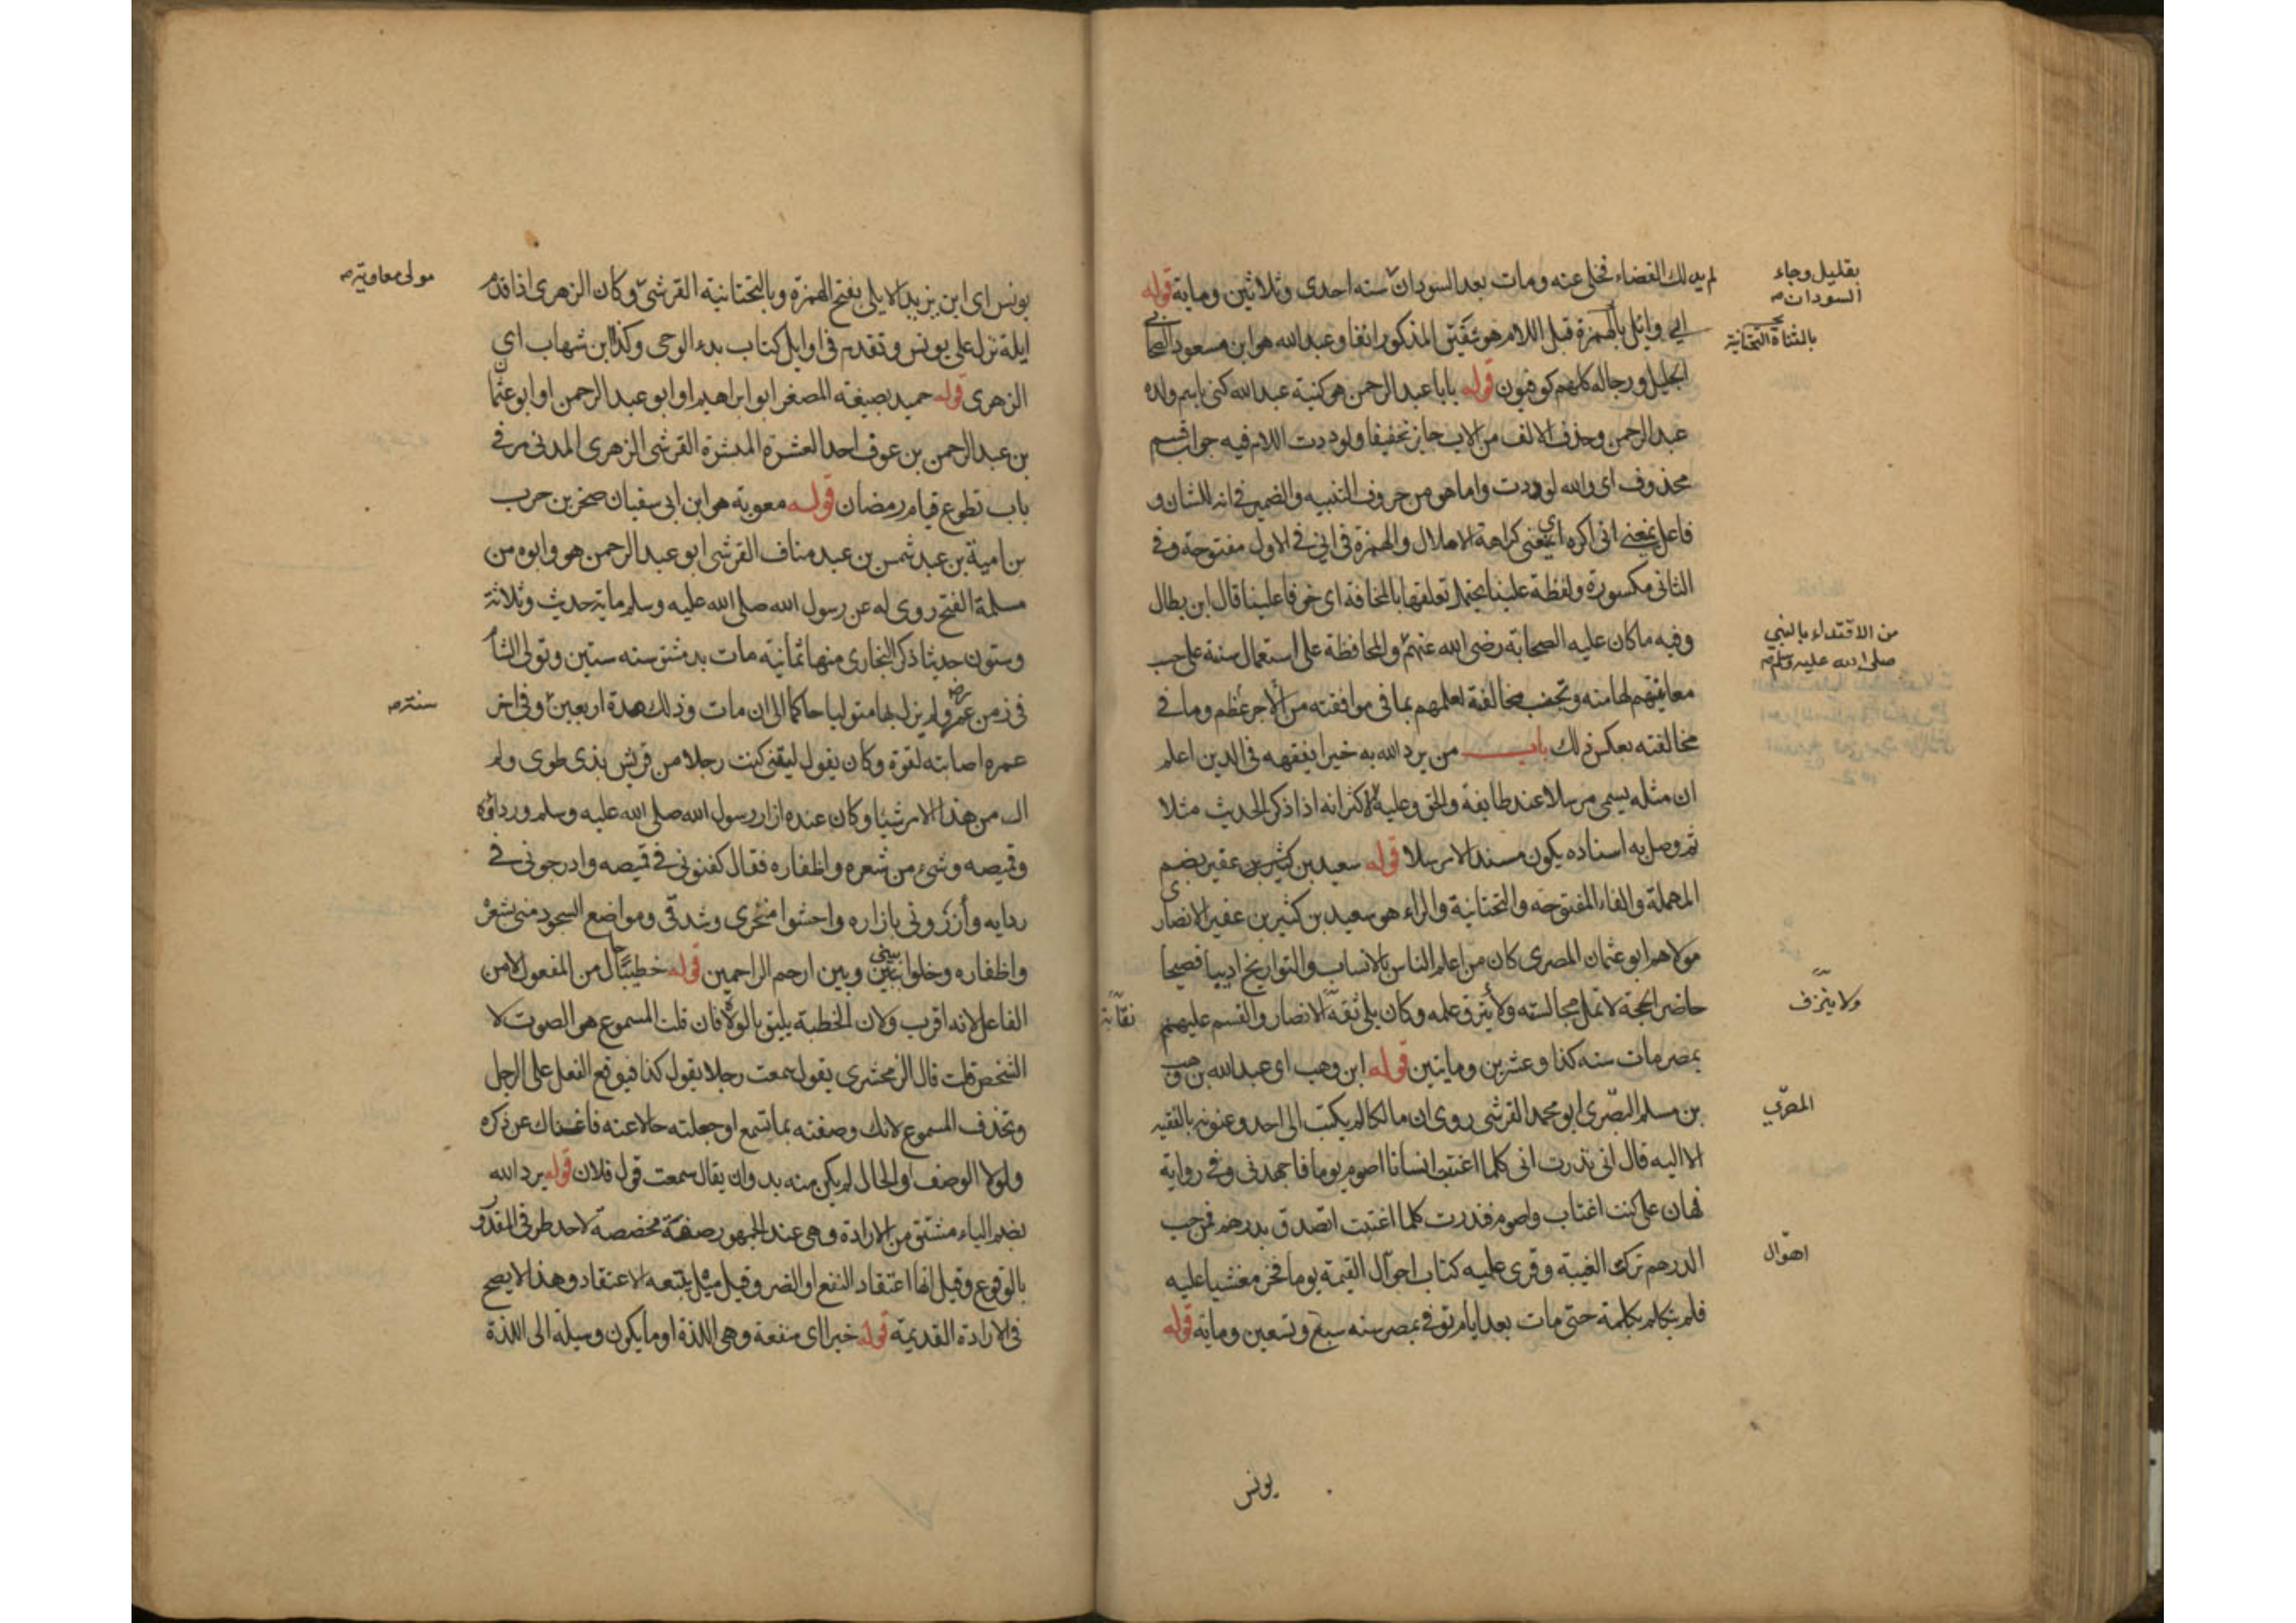 لم يدلك القضاء فخلى عنه ومات بعد السودان سنه احدى وثلاثين وماية قوله
بقليل وجاء
السودان صح
ابي وايل بالهمزة قبل اللام هو شقيق المذكور انفا وعبد الله هو ابن مسعود الصحابي
بالمثناة التحتانية
الجليل ورجاله كلهم كوفيون قوله يابا عبد الرحمن هو كنية عبد الله كنى باسم ولده
عبد الرحمن وحذف الالف من الاب جايز تخفيفا ولوددت اللام فيه جواب قسم
محذوف اى والله لوددت واما هو من حروف التنبيه والضمير فى انه للشان و
فاعل يمنعني انى اكره اي يمنعنى كراهة الاملال والهمزة فى اني في الاول مفتوحة وفي
الثانى مكسورة ولفظة علينا يحتمل تعلقها بالمخافة اى خوفا علينا قال ابن بطال
وفيه ما كان عليه الصحابة رضى الله عنهم والمحافظة على استعمال سنة على حب
من الاقتداء بالنبي
صلى الله عليه وسلم صح
معاينتهم لها منه وتجنب مخالفة لعلمهم بما فى موافقته من الاجر عظم وما في
مخالفته بعكس ذلك باب من يرد الله به خيرا يفقهه فى الدين اعلم
ان مثله يسمى مرسلا عند طايفة والحق وعليه الاكثر انه اذا ذكر الحديث مثلا
ثم وصل به اسناده يكون مسندا لا مرسلا قوله سعيد بن كثير بن عفير بضم
المهملة والفاء المفتوحه والتحتانية والراء هو سعيد بن كثير بن عفير الانصارى
مولاهم ابو عثمان المصرى كان من اعلم الناس بالانساب والتواريخ اديبا فصيحا
حاضر الحجة لا تمل مجالسته ولا يترق علمه وكان يلى ثقه الانصار والقسم عليهم
ولا ينزف
نقابة
بمصر مات سنه كذا وعشرين ومايتين قوله ابن وهب اى عبد الله بن وهب
بن مسلم البصرى ابو محمد القرشى روى ان مالكا لم يكتب الى احد وعنونه بالفقيه
المصري
الا اليه قال انى نذرت انى كلما اغتبت انسانا اصوم يوما فاجهدنى وفي رواية
فهان على كنت اغتاب واصوم فنذرت كلما اغتبت اتصدق بدرهم فمن حب
الدرهم تركت الغيبة وقرى عليه كتاب احوال القيمة يوما فخر مغشيا عليه
اهوال
فلم يتكلم بكلمة حتى مات بعد ايام توفي بمصر سنه سبع وتسعين وماية قوله
يونس
يونس اى ابن يزيد الايلى بفتح الهمزة وبالتحتانية القرشى وكان الزهرى اذا قدم
مولى معاوية صح
ايلة نزل على يونس وتقدم فى اوايل كتاب بدء الوحى وكذا ابن شهاب اي
الزهرى قوله حميد بصيغة المصغر ابو ابراهيم او ابو عبد الرحمن او ابو عثمان
بن عبد الرحمن بن عوف احد العشرة المبشرة القرشى الزهرى المدنى مر في
باب تطوع قيام رمضان قوله معوية هو ابن ابى سفيان صخر بن حرب
بن امية بن عبد شمس بن عبد مناف القرشى ابو عبد الرحمن هو وابوه من
مسلمة الفتح روى له عن رسول الله صلى الله عليه وسلم ماية حديث وثلاثة
وستون حديثا ذكر البخارى منها ثمانية مات بدمشق سنه ستين وتولى الشام
فى زمن عمر رضه ولم يزل بها متوليا حاكما الى ان مات وذلك مدة اربعين وفى اخر
سنة صح
عمره اصابته لقوة وكان يقول ليتنى كنت رجلا من قريش بذى طوى ولم
ال من هذا الامر شيئا وكان عنده ازار رسول الله صلى الله عليه وسلم ورداؤه
وقميصه وشىء من شعره واظفاره فقال كفنونى في قميصه وادرجونى في
ردايه وأزروني بازاره واحشوا منخرى وشدقى ومواضع السجود منى بشعره
واظفاره وخلوا بينى وبين ارحم الراحمين قوله خطيبا حال من المفعول لا من
الفاعل لانه اقرب ولان الخطبة يليق بالولاة فان قلت المسموع هو الصوت لا
الشخص قلت قال الزمخشرى يقول سمعت رجلا يقول كذا فيوقع الفعل على الرجل
وتحذف المسموع لانك وصفته بما تسمع او جعلته حالا عنه فاغناك عن ذكره
ولولا الوصف او الحال لم يكن منه بد وان يقال سمعت قول فلان قوله يرد الله
بضم الياء مشتق من الارادة وهى عند الجمهور صفة مخصصة لاحد طرفى المقدور
بالوقوع وقيل انها اعتقاد النفع او الضر وقيل ميل يتبعه الاعتقاد وهذا لا يصح
فى الارادة القديمة قوله خيرا اى منفعة وهى اللذة او ما يكون وسيلة الى اللذة